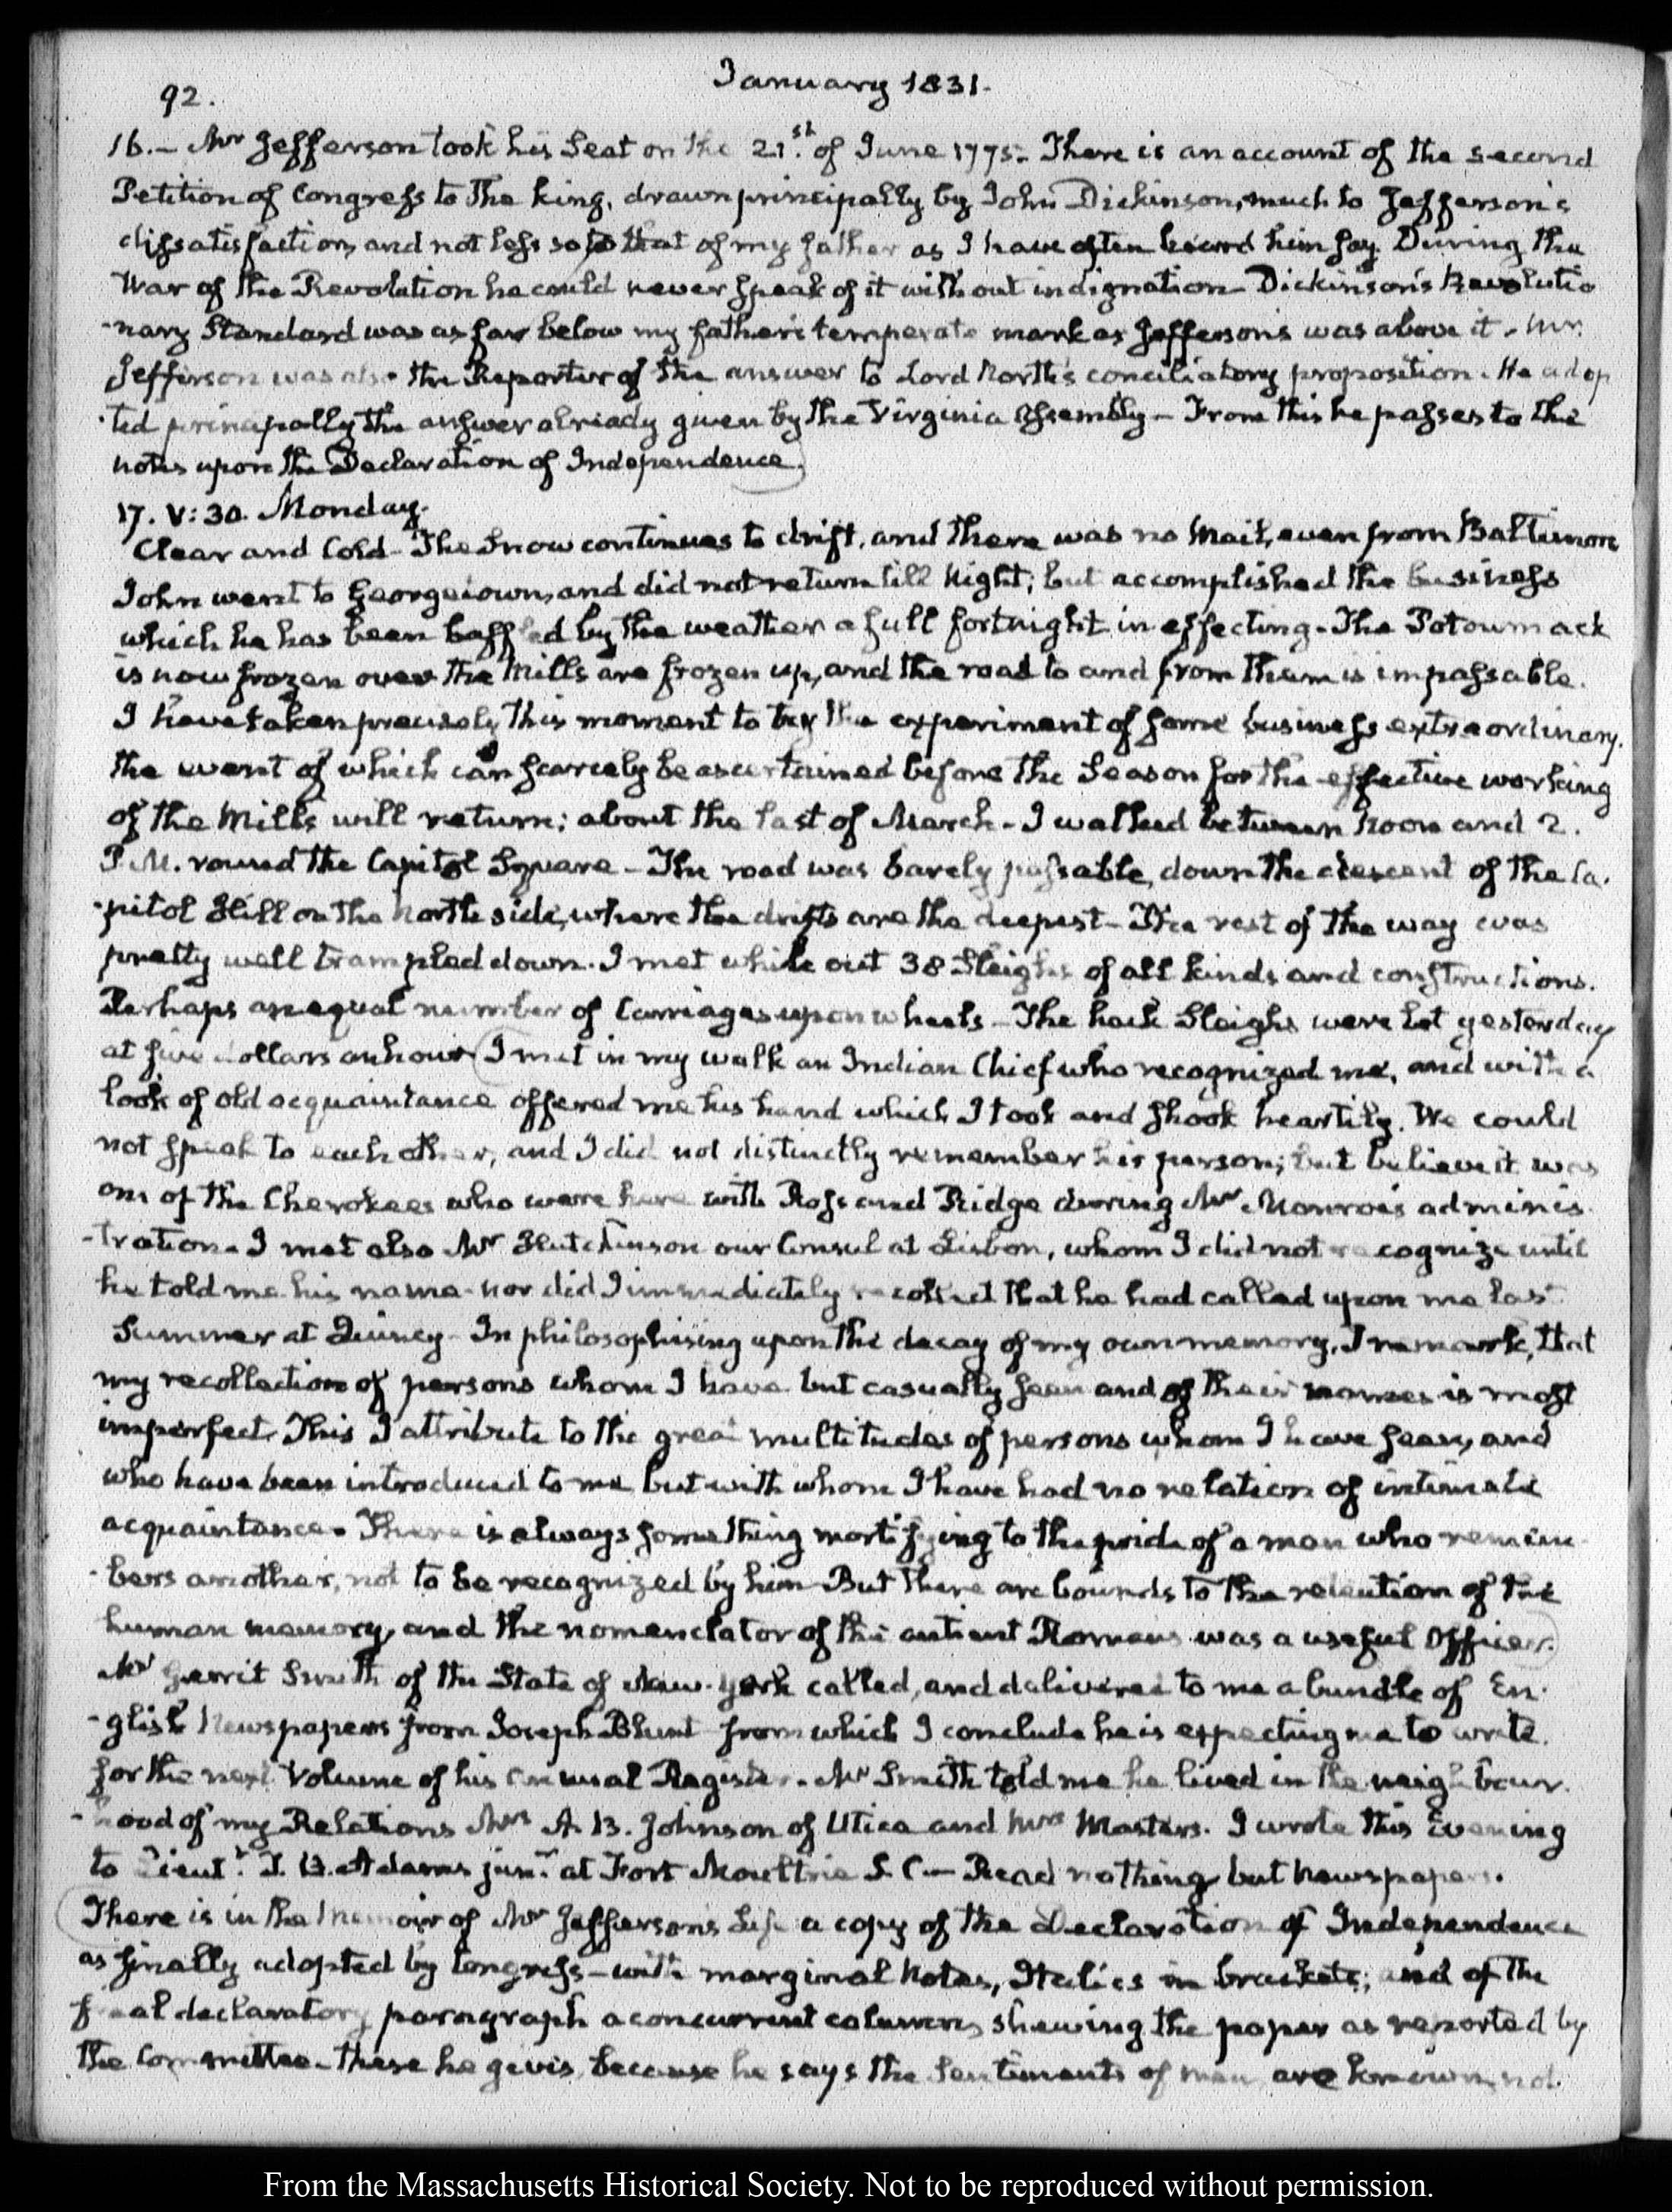 92.
January 1831.
16.— Mr Jefferson took his Seat on the 21st. of June 1775. There is an account of the second
Petition of Congress to the King, drawn principally by John Dickinson, much to Jefferson's
dissatisfaction, and not less so to that of my father as I have often heard him say. During the
War of the Revolution he could never speak of it without indignation— Dickinson's Revolutio
-nary Standard was as far below my father's temperate mark as Jefferson's was above it. Mr.
Jefferson was also the Reporter of the answer to Lord North's conciliatory proposition. He adop
-ted principally the answer already given by the Virginia Assembly— From this he passes to the
notes upon the Declaration of Independence.
17. V:30. Monday.
Clear and Cold— The Snow continues to drift, and there was no Mail, even from Baltimore
John went to Georgetown, and did not return till Night; but accomplished the business
which he has been baffled by the weather a full fortnight in effecting— The Potowmack
is now frozen over the Mills are frozen up, and the road to and from them is impassable.
I have taken precisely this moment to try the experiment of some business extraordinary,
the event of which can scarcely be ascertained before the Season for the effective working
of the Mills will return; about the last of March— I walked between Noon and 2.
P.M. round the Capitol Square— The road was barely passable, down the descent of the Ca-
-pitol Hill on the North side, where the drifts are the deepest— The rest of the way was
pretty well trampled down. I met while out 38 Sleighs of all kinds and constructions.
Perhaps an equal number of Carriages upon wheels— The hack Sleighs were let yesterday
at five dollars an hour (I met in my walk an Indian Chief who recognized me, and with a
look of old acquaintance offered me his hand which I took and shook heartily. We could
not speak to each other, and I did not distinctly remember his person; but believe it was
one of the Cherokees who were here with Ross and Ridge during Mr Monroe's adminis-
-tration. I met also Mr Hutchinson our Consul at Lisbon, whom I did not recognize until
he told me his name— nor did I immediately recollect that he had called upon me last
Summer at Quincy— In philosophising upon the decay of my own memory, I remark, that
my recollection of persons whom I have but casually seen and of their names is most
imperfect. This I attribute to the great multitudes of persons whom I have seen, and
who have been introduced to me but with whom I have had no relation of intimate
acquaintance. There is always something mortifying to the pride of a man who remem-
-bers another, not to be recognized by him— But there are bounds to the retention of the
human memory, and the nomenclator of the antient Romans was a useful Officer.)
Mr Gerrit Smith of the State of New-York called, and delivered to me a bundle of En-
-glish Newspapers from Joseph Blunt from which I conclude he is expecting me to write
for the next Volume of his Annual Register. Mr Smith told me he lived in the neighbour-
-hood of my Relations Mrs A. B. Johnson of Utica and Mrs Masters. I wrote this Evening
to Lieutt. T. B. Adams junr. at Fort Moultrie S. C.— Read nothing but Newspapers.
(There is in the Memoir of Mr Jefferson's Life a copy of the Declaration of Independence
as finally adopted by Congress— with marginal Notes, Italics in brackets; and of the
final declaratory paragraph a concurrent column, shewing the paper as reported by
the Committee— these he gives, because he says the Sentiments of men are known, not
From the Massachusetts Historical Society. Not to be reproduced without permission.